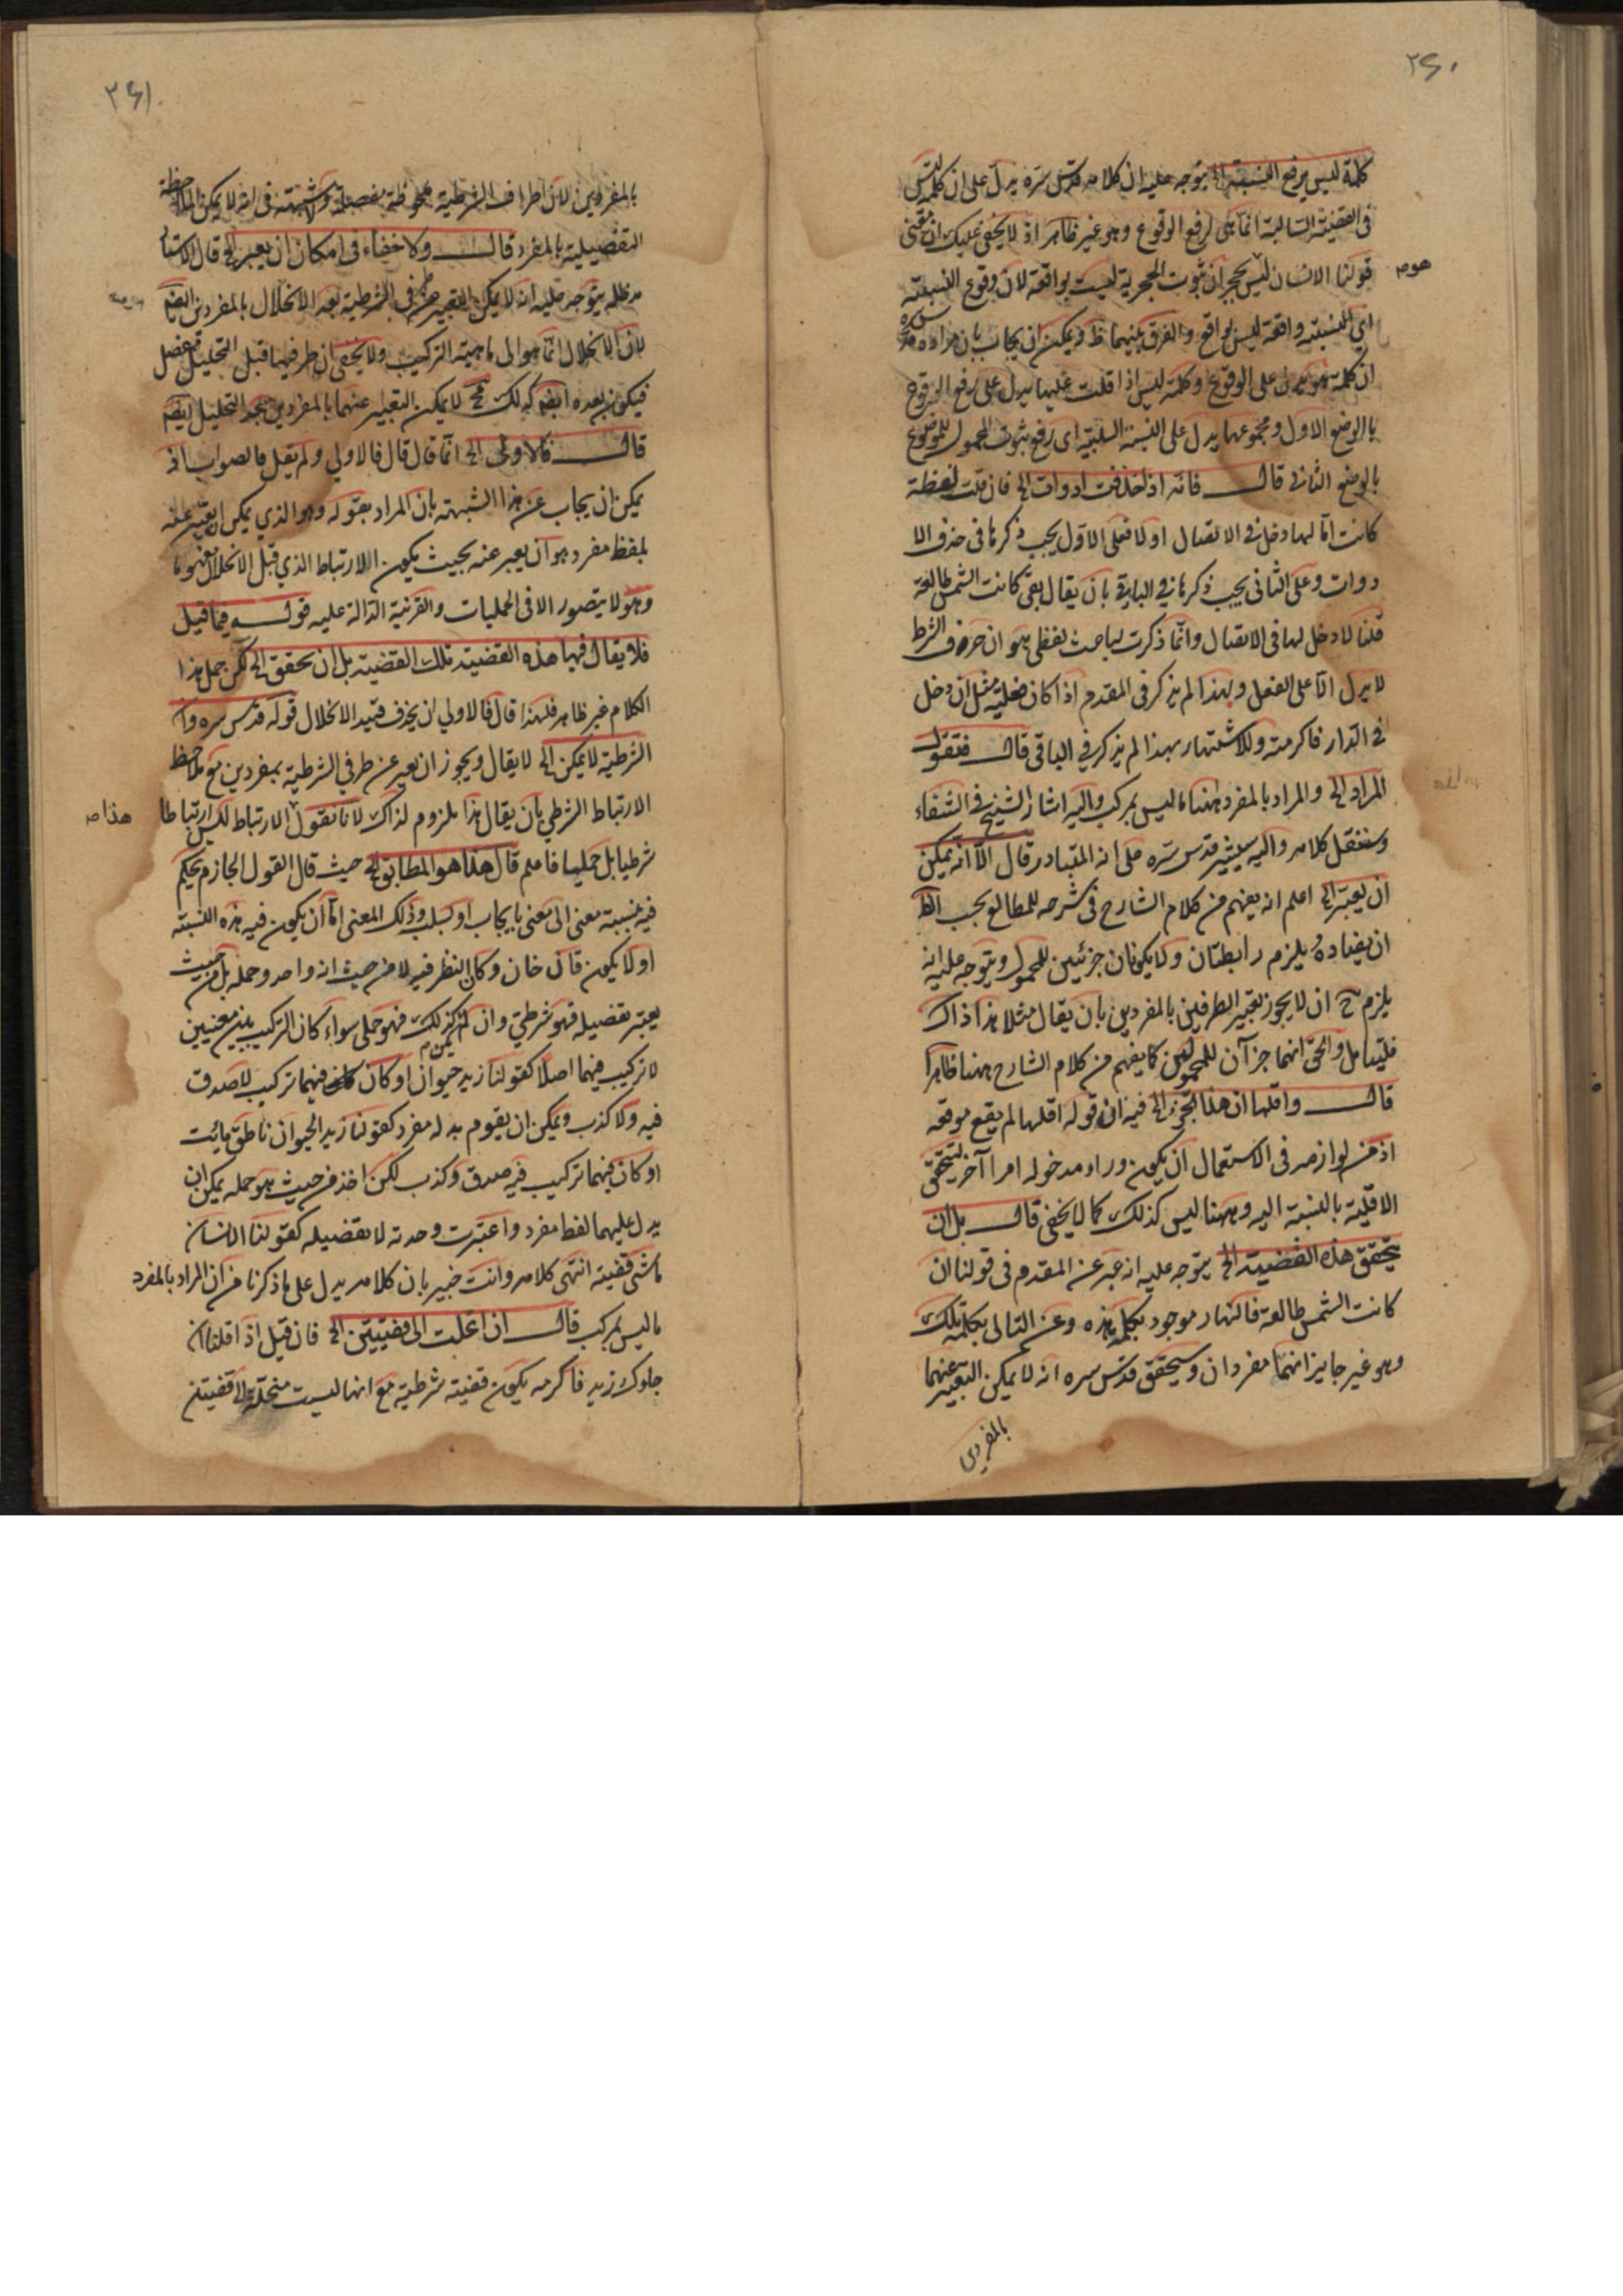 ٢٦٠
كلمة ليس يرفع النسبة الخ يتوجه عليه ان كلامه قدس سره يدل على ان كلمة ليس
فى القضية السالبة انما يدل لرفع الوقوع وهو غير ظاهر اذ لا يخفى عليك ان معنى
قولنا الانسان ليس بحجر ان ثبوت الحجرية ليست بواقعة لان وقوع النسبة
هو
اي النسبة واقعة ليس بواقع والفرق بينهما ظ ويمكن ان يجاب بان مراده قدس سره
ان كلمة هو يدل على الوقوع وكلمة ليس اذا قلت عليها يدل على رفع الوقوع
باالوضع الاول ومجموعها يدل على النسبة السلبية اى رفع ثبوت المحمول للموضوع
بالوضع الثانى قال فانه اذا حذفت ادوات الخ فان قلت لفظة
كانت اما لها دخل فى الاتصال او لا فعلى الاول يجب ذكرها فى حذف الا
دوات وعلى الثانى يجب ذكرها فى الباقى بان يقال بقى كانت الشمس طالعة
قلنا لا دخل لها فى الاتصال وانما ذكرت لباعث لفظى هو ان حرف الشرط
لا يدل الا على الفعل ولهذا لم يذكر فى المقدم اذا كان فعلية مثل ان دخل
فى الدار فاكرمته وللاشتهار بهذا لم يذكر فى الباقى قال فنقول
المراد الخ والمراد بالمفرد ههنا ما ليس بمركب واليه اشار الشيخ فى الشفاء
وسننقل كلامه واليه سيشير قدس سره على انه المتبادر قال الا انه يمكن
ان يعبر الخ اعلم انه يفهم من كلام الشارح فى شرحه للمطالع بحسب الظ
ان يلزم رابطتان ولا يكونان جزئين للمحمول ويتوجه عليه انه
يلزم ح ان لا يجوز تعبير الطرفين بالمفردين بان يقال مثلا هذا ذاك
فليتامل والحق انهما جزآن للمحمولين كما يفهم من كلام الشارح ههنا ظاهرا
قال واقلها ان هذا الخ فيه ان قوله اقلها لم يقع موقعه
اذ من لوازمه فى الاستعمال ان يكون وراء مدخوله امرا آخر ليتحقق
الاقلية بالنسبة اليه وههنا ليس كذلك كما لا يخفى قال بل ان
يتحقق هذه القضية الخ يتوجه عليه انه عبر عن المقدم فى قولنا ان
كانت الشمس طالعة فالنهار موجود بكلمة هذه وعن التالى بكلمة تلك
وهو غير جايز انهما مفردان وسيحقق قدس سره انه لا يمكن التعبير عنهما
بالمفردين
٢٦١
بالمفردين لان اطراف الشرطية ملحوظة مفصلة ولا شبهة فى انه لا يمكن الملاحظة
التفصيلية بالمفرد قال ولا خفاء فى امكان ان يعبر الخ قال الاستاد
مد ظله يتوجه عليه انه لا يمكن التعبير عن طرفى الشرطية بعد الانحلال بالمفردين ايضا
لان الانحلال انما هو الى ماهية التركيب ولا يخفى ان طرفيها قبل التحليل مفصل
فيكون بعده ايضا كذلك فح لا يمكن التعبير عنهما بالمفردين بعد التحليل ايضا
قال فالاولى الخ انما قال قال فالاولي ولم يقل فالصواب اذ
يمكن ان يجاب عن هذا الشبهة بان المراد بقوله وهو الذي يمكن ان يعبر عنه
بلفظ مفرد هو ان يعبر عنه بحيث يكون الارتباط الذي قبل الانحلال مفهوما
وهو لا يتصور الا فى الحمليات والقرينة الدالة عليه قوله فيما قيل
فلا يقال فيها هذه القضية تلك القضية بل ان تحقق الخ لكن حمل هذا
الكلام غير ظاهر فلهذا قال فالاولي ان يحذف قيد الانحلال قوله قدس سره واما
الشرطية لا يمكن الخ لا يقال ويجوز ان يعبر عن طرفي الشرطية بمفردين مع ملاحظة
الارتباط الشرطي بان يقال هذا ملزوم لذاك لانا نقول الارتباط ليس ارتباطا
هذا
شرطيا بل حمليا فافهم قال هذا هو المطابق الخ حيث قال القول الجازم يحكم
فيه بنسبة معنى الى معنى بايجاب او سلب وذلك المعنى اما ان يكون فيه هذه النسبة
او لا يكون فان كان وكان النظر فيه لا من حيث انه واحد وجمله بل من حيث
يعتبر تفصيله فهو شرطي وان لم يكن كذلك فهو حملى سواء كان التركيب بين معنيين
لا تركيب فيهما اصلا كقولنا زيد حيوان او كان فيهما تركيب لا صدق
فيه ولا كذب ويمكن ان يقوم بدله مفرد كقولنا زيد الحيوان ناطق مائت
او كان فيهما تركيب فيه صدق وكذب لكن اخذ من حيث هو جمله يمكن ان
يدل عليهما لفظ مفرد واعتبرت وحدته لا تفصيله كقولنا الانسان
ماشى قضية انتهى كلامه وانت خبير بان كلامه يدل على ما ذكرنا من ان المراد بالمفرد
ما ليس بمركب قال ان انحلت الى قضيتين الخ فان قيل اذا قلنا ان
جاءوك زيد فاكرمه يكون قضية شرطية مع انها ليست منحلة الى قضيتين